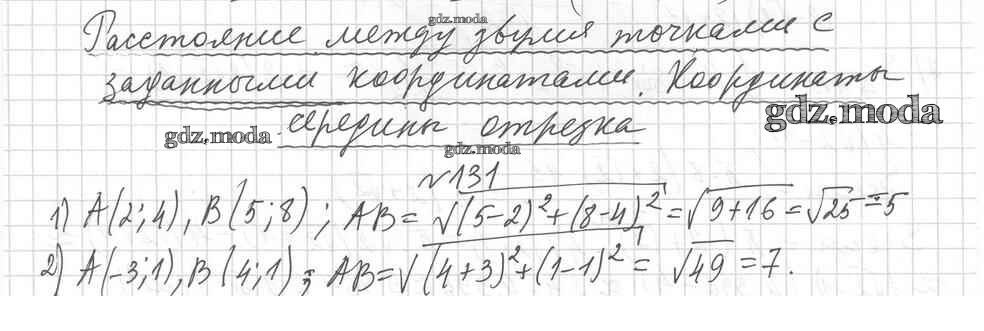 gdz.moda
Расстояние между двумя точками с
заданными координатами. Координаты
gdz.moda
gdz.moda
середины отрезка
gdz.moda
№131
1) A(2;4), B(5;8); AB = √((5-2)²+(8-4)²) = √9+16 = √25 = 5
2) A(-3;1), B(4;1); AB = √((4+3)²+(1-1)²) = √49 = 7.